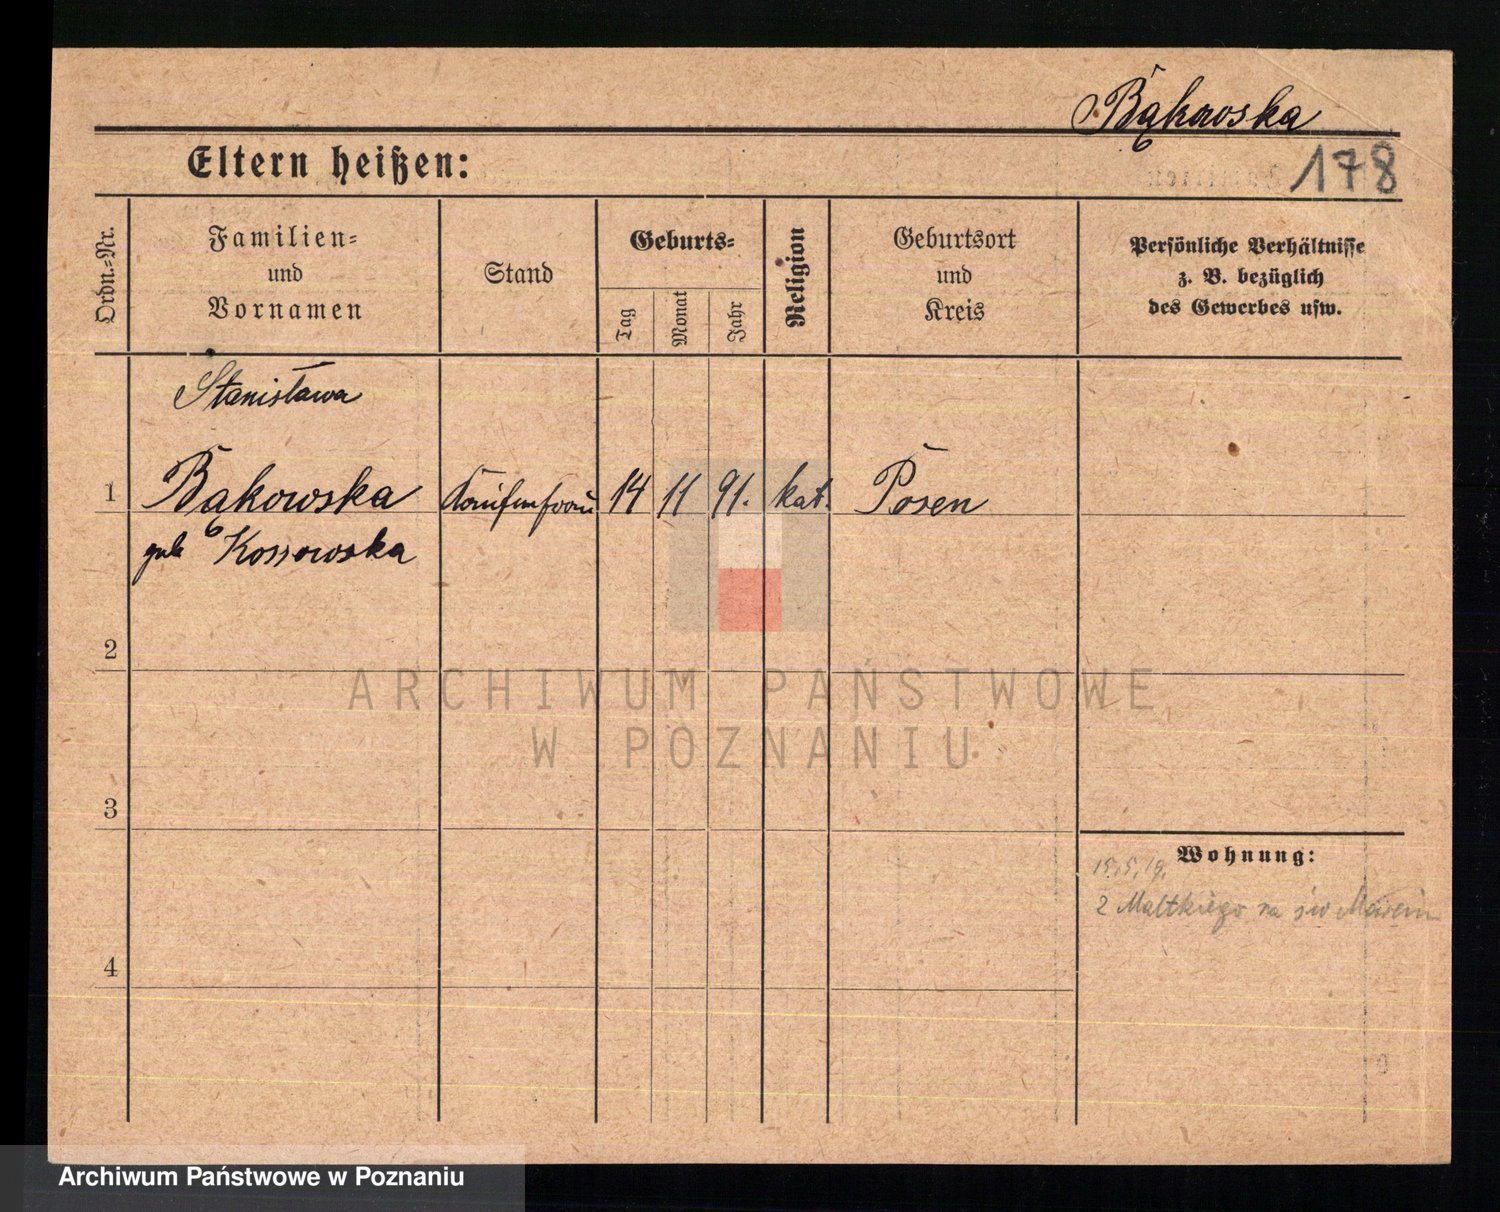 Bąkowska
Eltern heißen:
178
Ordn.=Nr.
Familien=
und
Vornamen
Stand
Geburts=
Tag
Monat
Jahr
Religion
Geburtsort
und
Kreis
Persönliche Verhältnisse
z. B. bezüglich
des Gewerbes usw.
Stanisława
1 Bąkowska Kaufmfrau 14 11 91. kat. Posen
geb Kossowska
2
ARCHIWUM PAŃSTWOWE
W POZNANIU
3
Wohnung:
15.5.19.
2 Maltkiego na św
4
Archiwum Państwowe w Poznaniu